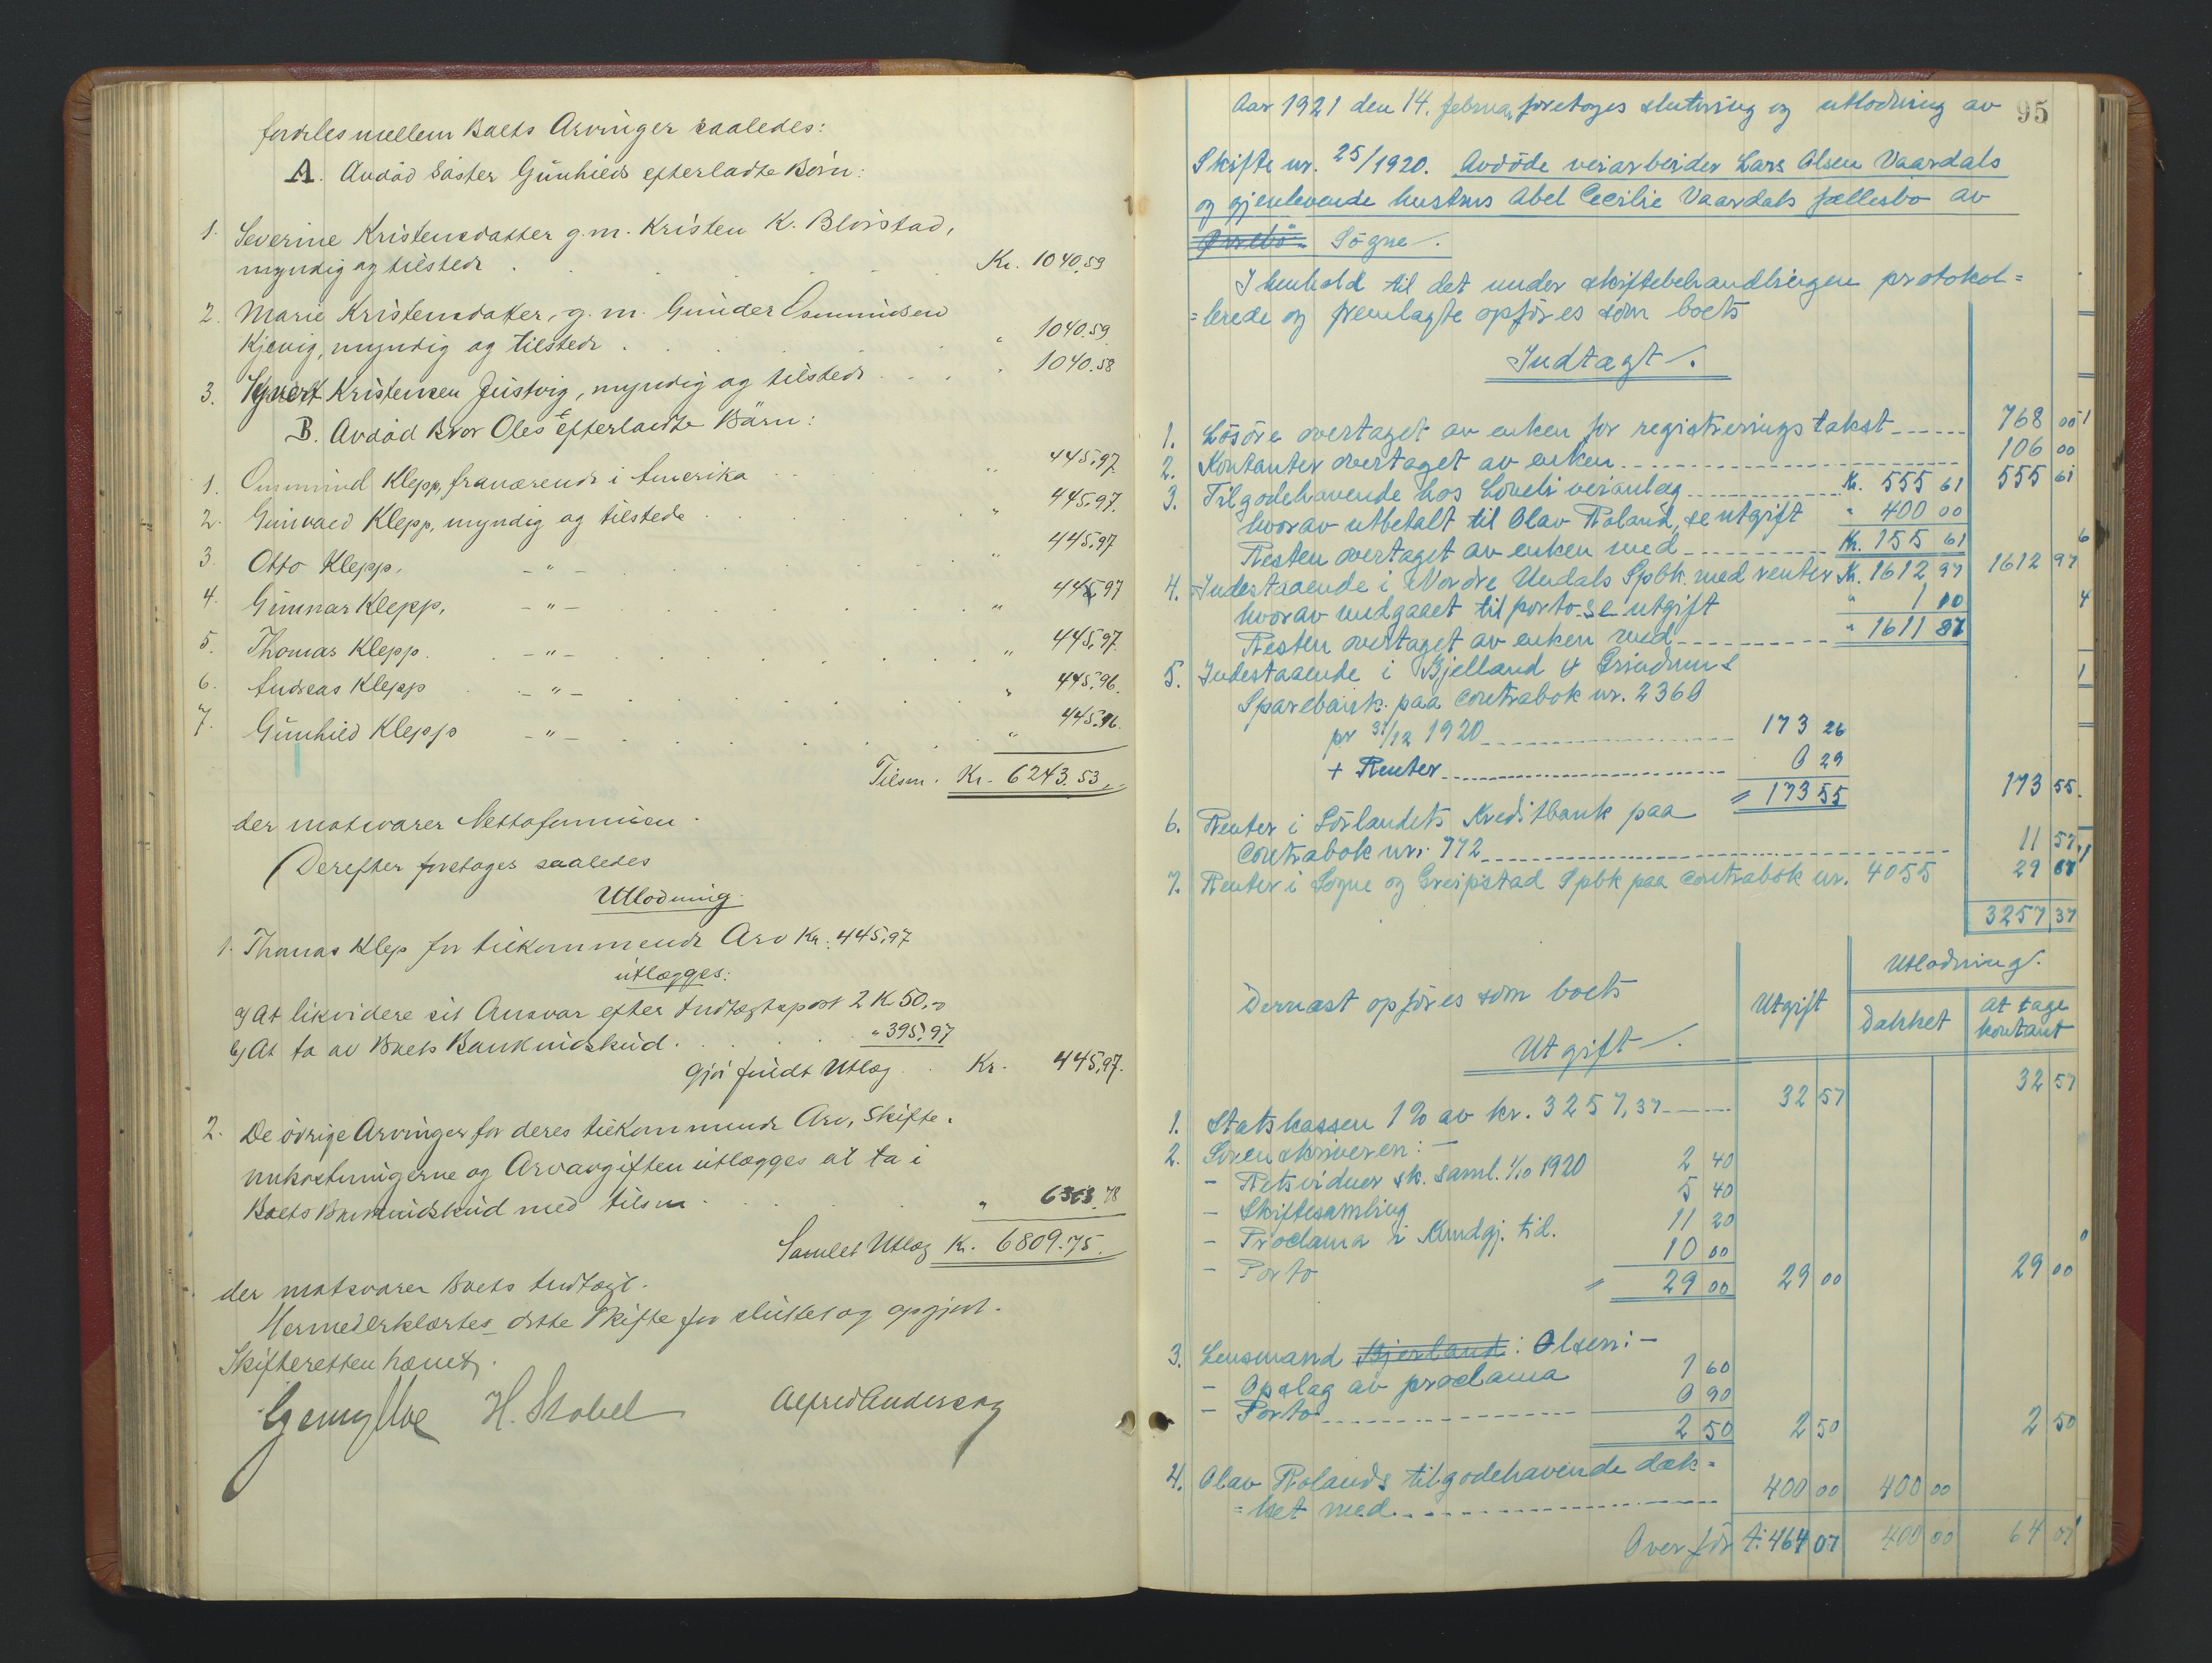 fordeles mellem Boets Arvinger saaledes:
A. Avdöd Söster Gunhilds efterladte Börn:
1. Severine Kristensdatter g.m. Kristen K. Blörstad,
myndig og tilstede . . . Kr. 1040.59
2. Marie Kristensdatter, g.m. Gunder Osmundsen
Kjevig, myndig og tilstede . . . " 1040.59
3. Kristensen Justvig, myndig og tilstede . . . " 1040.58
B. Avdöd Bror Oles efterladte Börn:
1. Ommund Klepp, fraværende i Amerika . . . " 445,97
2. Gunvald Klepp, myndig og tilstede . . . " 445,97
3. Otto Klepp, - " - . . . " 445,97
4. Gunnar Klepp, - " - . . . " 445,97
5. Thomas Klepp. - " - . . . " 445,97
6. Andreas Klepp - " - . . . " 445,96.
7. Gunhild Klepp - " - . . . " 445,96.
Tilsm. Kr. 6243.53
der motsvarer Nettoformuen.
Derefter foretoges saaledes
Utlodning.
1. Thomas Klep for tilkommende Arv Kr. 445,97
utlægges:
a) At likvidere sit Ansvar efter Indtægtspost 2 K 50,-
b) At ta av Boets Bankindskud . . . " 395,97
Gjör fuldt Utlæg . . Kr. 445,97.
2. De övrige Arvinger for deres tilkommende Arv, Skifte-
omkostningerne og Arveavgiften utlægges at ta i
Boets Bankindskud med tilsm . . . " 6363.78
Samlet Utlæg Kr. 6809.75.
der motsvarer Boets Indtægt.
Hermed erklærtes dette Skifte for sluttet og opgjort.
Skifteretten hævet.
H. Stabel Alfred Andersen
95
Aar 1921 den 14. februar foretoges slutning og utlodning av
Skifte nr. 25/1920. Avdöde veiarbeider Lars Olsen Vaardals
og gjenlevende hustrus Abel Cecilie Vaardals fællesbo av
Sögne.
I henhold til det under skiftebehandlingen protokol=
=lerede og fremlagte opföres som boets
Indtægt.
1. Lösöre overtaget av enken for registreringstakst 768 00
2. Kontanter overtaget av enken 106 00
3. Tilgodehavende hos veianlæg Kr. 555 61 555 61
hvorav utbetalt til Olav Roland, se utgift " 400 00
Resten overtaget av enken med Kr. 155 61
4. Indestaaende i Nordre Undals Spbk. med renter Kr. 1612 97 1612 97
hvorav medgaaet til porto se utgift " 1 10
Resten overtaget av enken med " 1611 87
5. Indestaaende i Bjelland & Grindums
Sparebank paa contrabok nr. 2360
pr 31/12 1920 173 26
+ Renter 0 29
= 173 55 173 55.
6. Renter i Sörlandets Kreditbank paa
contrabok nr. 772 11 57
7. Renter i Sögne og Greipstad Spbk paa contrabok nr. 4055 29 67
3257 37
Dernæst opföres som boets
Utgift.
Utgift
Utlodning.
Dækket
At tage kontant
1. Statskassen 1% av kr. 3257,37 32 57 32 57
2. Sorenskriveren: -
- Retsvidner sk. saml. 1/10 1920 2 40
- Skiftesamling 5 40
- Proclama i Kundgj. tid. 11 20
- Porto 10 00
= 29 00 29 00 29 00
3. Lensmand Bjerland: Olsen: -
- Opslag av proclama 1 60
- Porto 0 90
2 50 2 50 2 50
4. Olav Rolands tilgodehavende dæk=
=ket med 400 00 400 00
Overför t: 464 07 400 00 64 07